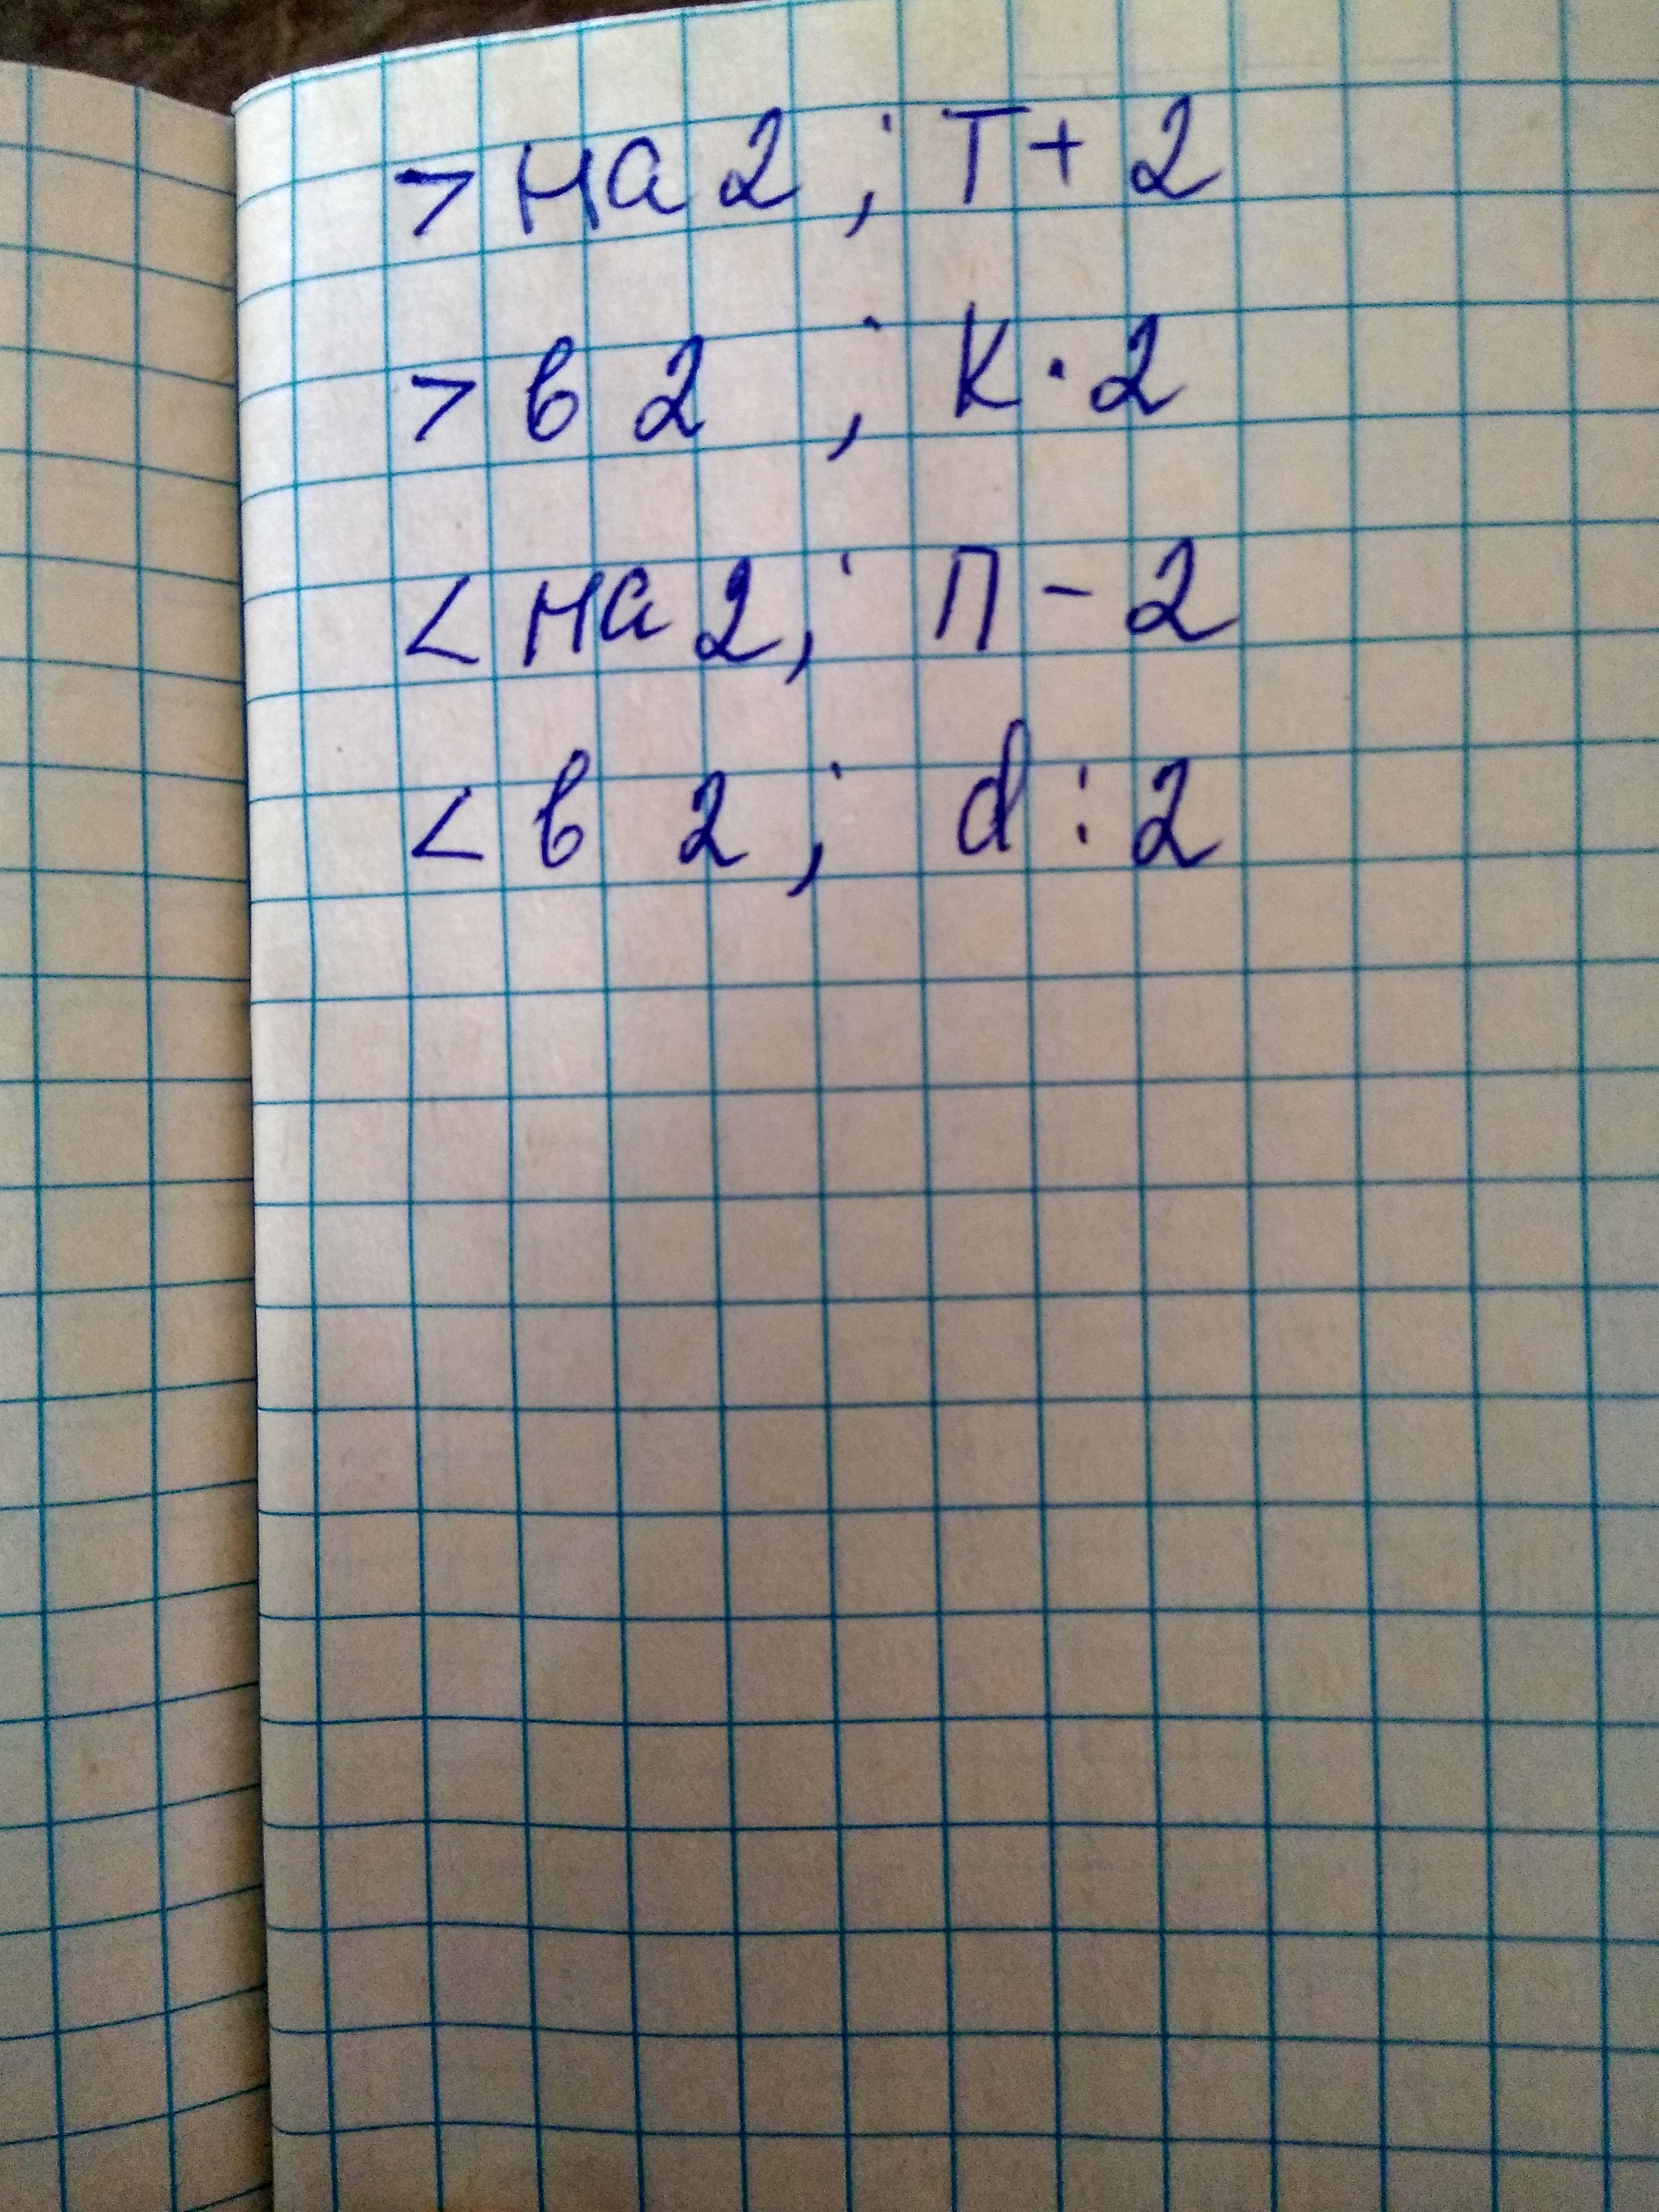 > на 2 ; т + 2
> в 2 ; к · 2
< на 2 ; п - 2
< в 2 ; d : 2